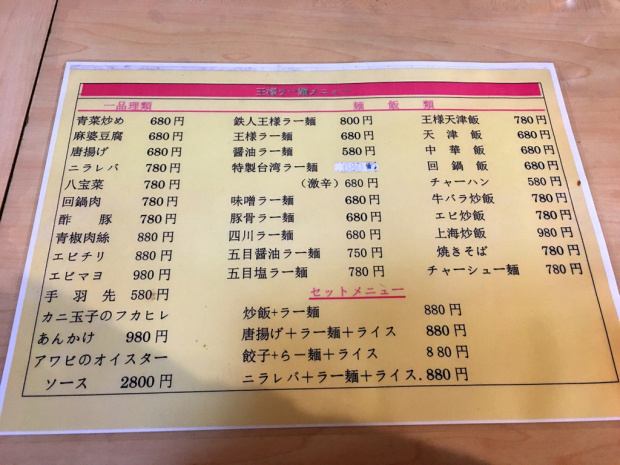 王様ラー麺メニュー
一品理類
青菜炒め 680円
麻婆豆腐 680円
唐揚げ 680円
ニラレバ 780円
八宝菜 780円
回鍋肉 780円
酢豚 780円
青椒肉絲 880円
エビチリ 880円
エビマヨ 980円
手羽先 580円
カニ玉子のフカヒレ
あんかけ 980円
アワビのオイスター
ソース 2800円
麺飯類
鉄人王様ラー麺 800円
王様ラー麺 680円
醤油ラー麺 580円
特製台湾ラー麺
(激辛) 680円
味噌ラー麺 680円
豚骨ラー麺 680円
四川ラー麺 680円
五目醤油ラー麺 750円
五目塩ラー麺 780円
王様天津飯 780円
天津飯 680円
中華飯 680円
回鍋飯 680円
チャーハン 580円
牛バラ炒飯 780円
エビ炒飯 780円
上海炒飯 980円
焼きそば 780円
チャーシュー麺 780円
セットメニュー
炒飯+ラー麺 880円
唐揚げ+ラー麺+ライス 880円
餃子+らー麺+ライス 880円
ニラレバ+ラー麺+ライス.880円